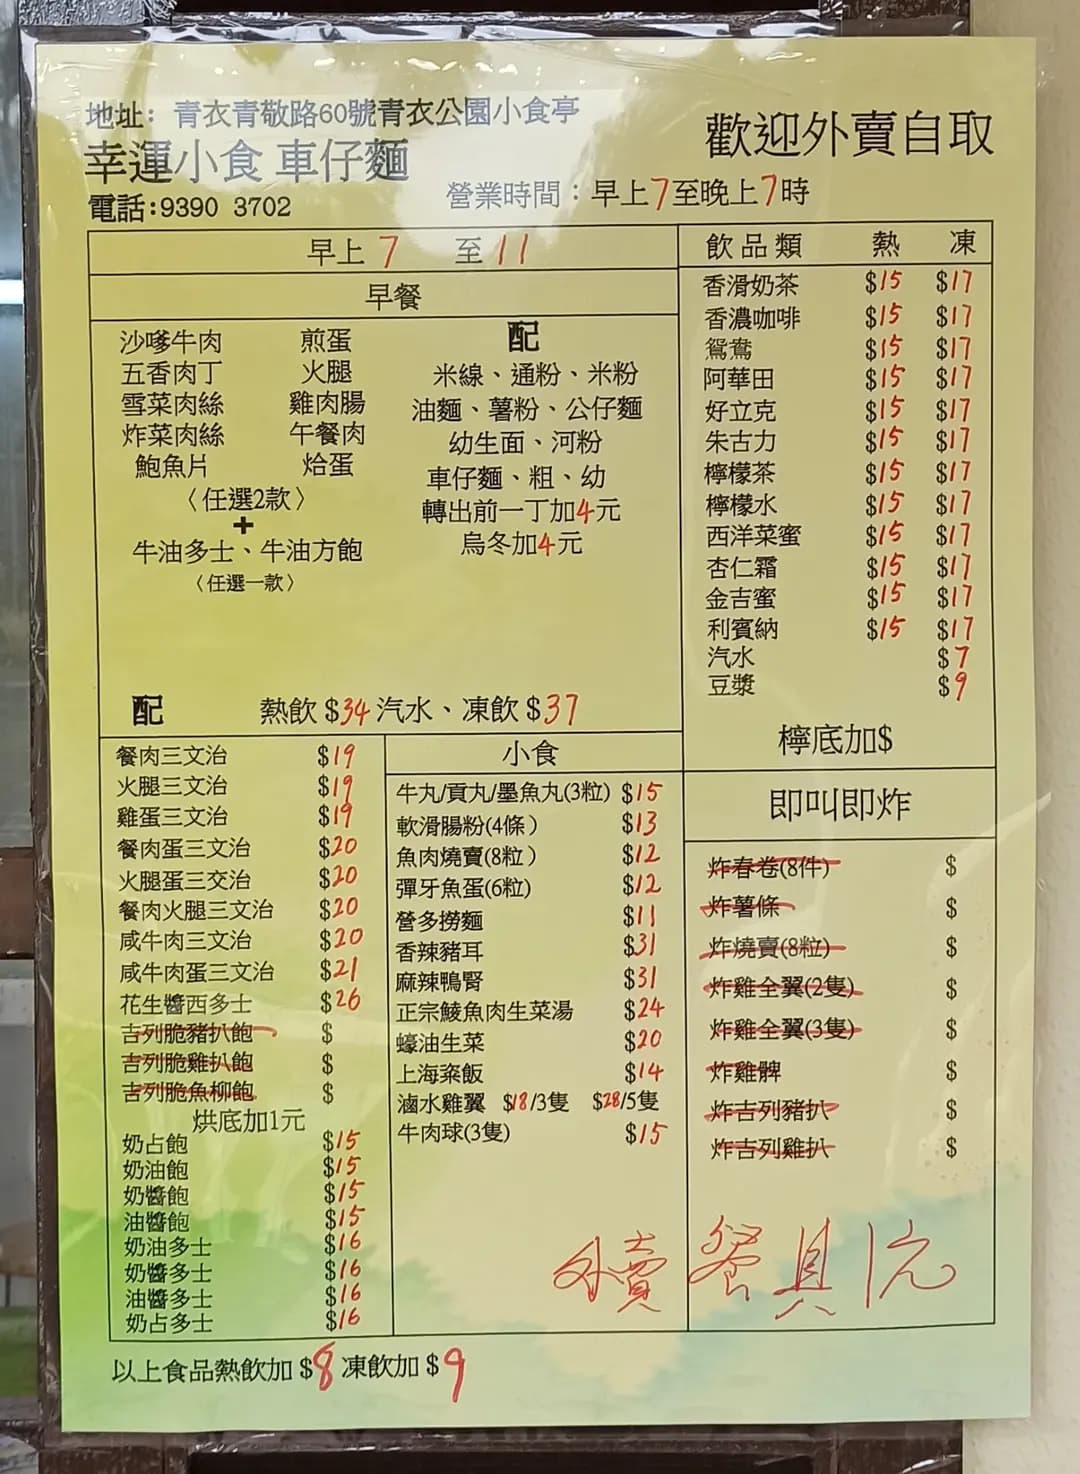 地址：青衣青敬路60號青衣公園小食亭
幸運小食 車仔麵
電話:9390 3702
歡迎外賣自取
營業時間：早上7至晚上7時
早上 7 至 11
早餐
沙嗲牛肉 煎蛋
五香肉丁 火腿
雪菜肉絲 雞肉腸
炸菜肉絲 午餐肉
鮑魚片 烚蛋
〈任選2款〉
+
牛油多士、牛油方飽
〈任選一款〉
配
米線、通粉、米粉
油麵、薯粉、公仔麵
幼生面、河粉
車仔麵、粗、幼
轉出前一丁加4元
烏冬加4元
配 熱飲 $34 汽水、凍飲 $37
飲品類 熱 凍
香滑奶茶 $15 $17
香濃咖啡 $15 $17
鴛鴦 $15 $17
阿華田 $15 $17
好立克 $15 $17
朱古力 $15 $17
檸檬茶 $15 $17
檸檬水 $15 $17
西洋菜蜜 $15 $17
杏仁霜 $15 $17
金吉蜜 $15 $17
利賓納 $15 $17
汽水 $7
豆漿 $9
檸底加$
餐肉三文治 $19
火腿三文治 $19
雞蛋三文治 $19
餐肉蛋三文治 $20
火腿蛋三交治 $20
餐肉火腿三文治 $20
咸牛肉三文治 $20
咸牛肉蛋三文治 $21
花生醬西多士 $26
吉列脆豬扒飽 $
吉列脆雞扒飽 $
吉列脆魚柳飽 $
烘底加1元
奶占飽 $15
奶油飽 $15
奶醬飽 $15
油醬飽 $15
奶油多士 $16
奶醬多士 $16
油醬多士 $16
奶占多士 $16
小食
牛丸/貢丸/墨魚丸(3粒) $15
軟滑腸粉(4條) $13
魚肉燒賣(8粒) $12
彈牙魚蛋(6粒) $12
營多撈麵 $11
香辣豬耳 $31
麻辣鴨腎 $31
正宗鯪魚肉生菜湯 $24
蠔油生菜 $20
上海粢飯 $14
滷水雞翼 $18/3隻 $28/5隻
牛肉球(3隻) $15
即叫即炸
炸春卷(8件) $
炸薯條 $
炸燒賣(8粒) $
炸雞全翼(2隻) $
炸雞全翼(3隻) $
炸雞髀 $
炸吉列豬扒 $
炸吉列雞扒 $
外賣餐具1元
以上食品熱飲加 $8 凍飲加 $9